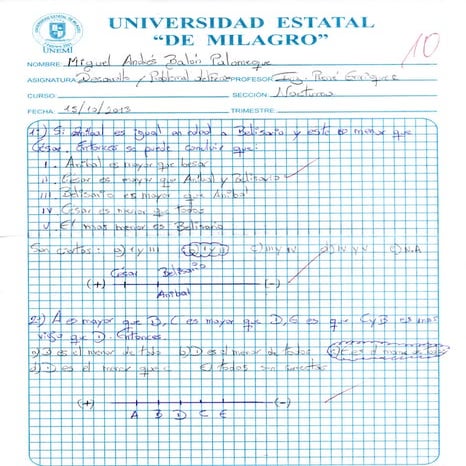 UNIVERSIDAD ESTATAL
"DE MILAGRO"
UNEMI
10
NOMBRE: Miguel Andrés Balón Palomeque
ASIGNATURA: Desarrollo / Problema PROFESOR: Ing. René
CURSO: SECCIÓN: Nocturna
FECHA: 15/10/2013 TRIMESTRE:
1) Si Aníbal es igual en edad a Belisario y este es menor que
César. Entonces se puede concluir que:
I. Aníbal es mayor que
II. César es mayor que Aníbal y Belisario
III. Belisario es mayor que Aníbal
IV. César es menor que todos
V. El mas menor es Belisario
Son ciertas: a) I y III I y II c) III y IV d) IV y V N.A
César Belisario
(+) (-)
Aníbal
2) A es mayor que B, C es mayor que D, E es que C y B es mas
viejo que D. Entonces.
es el menor de todo b) D es el menor de todos c) E es el menor de
d) D es el menor que C E) todos son correctas
(+) (-)
A B D C E